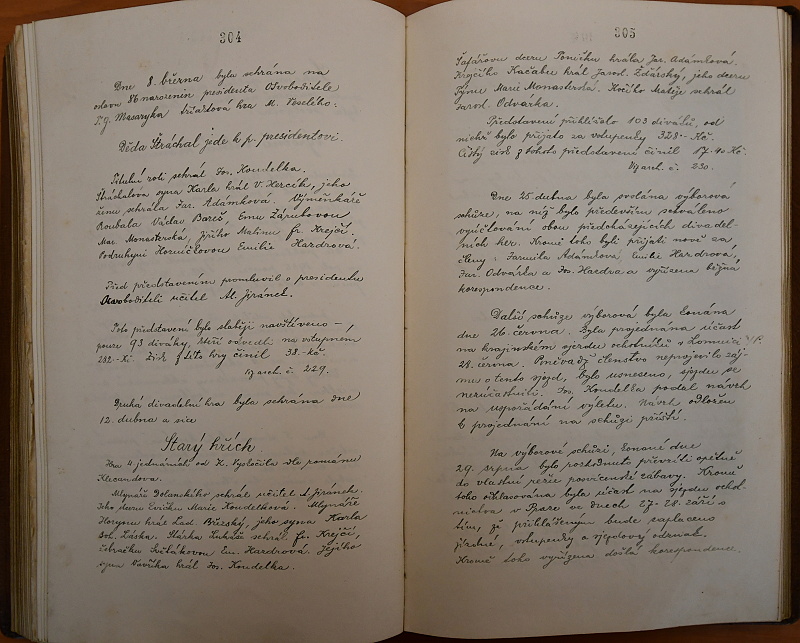 304
Dne 8. března byla sehrána na
oslavu 86 narozenin presidenta Osvoboditele
T. G. Masaryka tříaktová hra M. Veselého:
Děda Štráchal jede k p. presidentovi.
Titulní roli sehrál Jos. Koudelka.
Štráchalova syna Karla hrál V. Hercík, jeho
ženu sehrála Jar. Adámková. Výměnkáře
Roubala Václav Bareš, Emu Zárubovou
Mar. Monasterská, Jiřího Malinu fr. Krejčí.
Podruhyni Horníčkovou Emilie Hardrová.
Před představením promluvil o presidentu
Osvoboditeli učitel Al. Jiránek.
Toto představení bylo slaběji navštíveno –
pouze 93 diváky, kteří odvedli na vstupném
282.- Kč. Zisk z této hry činil 38.- Kč.
Viz arch. č. 229.
Druhá divadelní hra byla sehrána dne
12. dubna a sice
Starý hřích.
Hra 4 jednáních od K. Vysločila dle románu
Klecandova.
Mlynáře Dolanského sehrál učitel A. Jiránek.
Jeho dceru Evičku Marie Koudelková. Mlynáře
Horynu hrál Lad. Březský, jeho syna Karla
Boh. Láska. Stárka Lukáše sehrál fr. Krejčí,
žebračku Svitákovou Em. Hardrová. Jejího
syna Vavříka hrál Jos. Koudelka.
305
Šafářovu dceru Toničku hrála Jar. Adámková.
Krejčího Kačabu hrál Jarosl. Žďárský, jeho dceru
Týnu Marie Monasterská. Kočího Matěje sehrál
Jarosl. Odvárka.
Představení přihlíželo 103 diváků, od
nichž bylo přijato za vstupenky 328.- Kč.
Čistý zisk z tohoto představení činil 87.40 Kč.
Viz arch. č. 230.
Dne 25. dubna byla svolána výborová
schůze, na níž bylo především schváleno
vyúčtování obou předcházejících divadel-
ních her. Kromě toho byli přijati nově za
členy: Jarmila Adámková, Emilie Hardrová,
Jar. Odvárka a Jos. Hardra a vyřízena běžná
korespondence.
Další schůze výborová byla konána
dne 26. června. Byla projednána účast
na krajinském sjezdu ochotníků v Lomnici n/P.
28. června. Poněvadž členstvo neprojevilo záj-
mu o tento sjezd, bylo usneseno, sjezdu se
nezúčastniti. Jos. Koudelka podal návrh
na uspořádání výletu. Návrh odložen
k projednání na schůzi příští.
Na výborové schůzi, konané dne
29. srpna bylo rozhodnuto převzíti opětně
do vlastní režie posvícenské zábavy. Kromě
toho odhlasována byla účast na sjezdu ochot-
nictva v Praze ve dnech 27.-28. září s
tím, že přihlášeným bude zaplaceno
jízdné, vstupenky a sjezdový odznak.
Kromě toho vyřízena došlá korespondence.